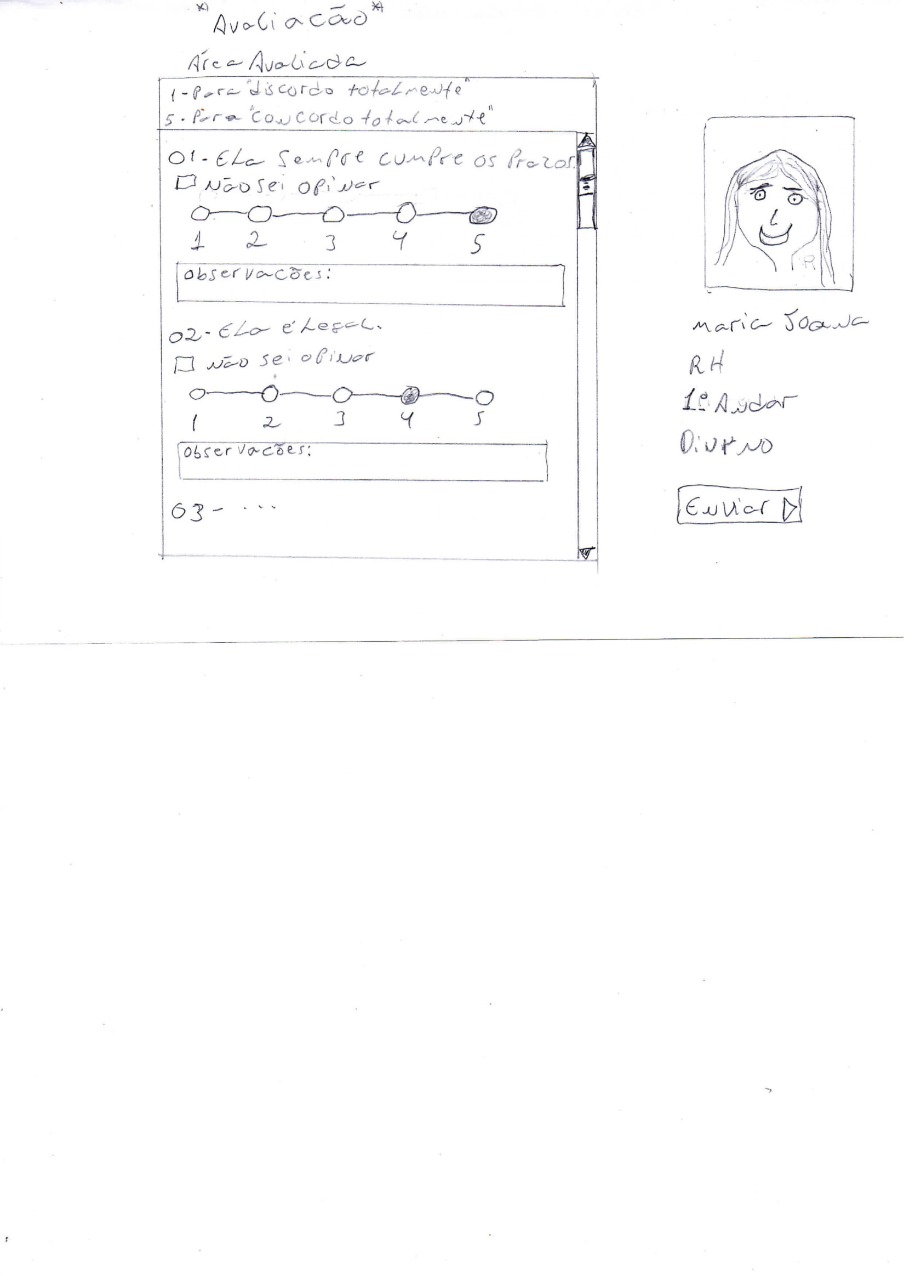 *Avaliação*
Área Avaliada
1-Para "discordo totalmente"
5-Para "concordo totalmente"
01- Ela sempre cumpre os prazos.
Não sei opinar
1 2 3 4 5
Observações:
02- Ela é legal.
Não sei opinar
1 2 3 4 5
Observações:
03- ...
R
Maria Joana
RH
1º Andar
Diurno
Enviar